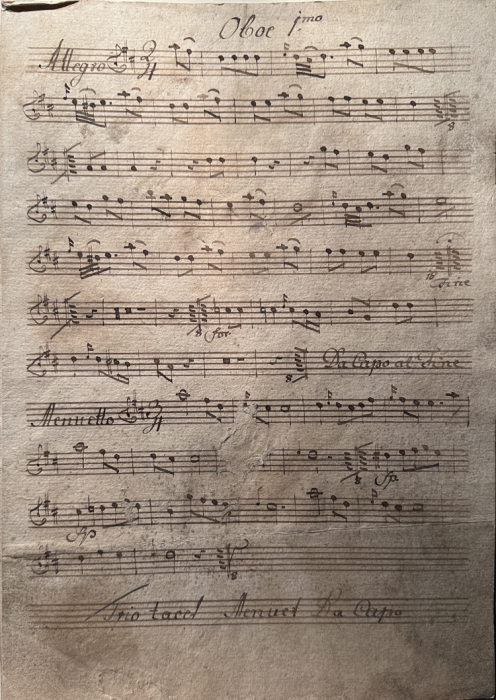 Oboe 1mo
Allegro 2/4
8
8
16 Fine
8 for:
8 Da Capo al Fine
Menuetto 3/4
8 Sp
Sp
8
Trio tacet Menuet Da Capo